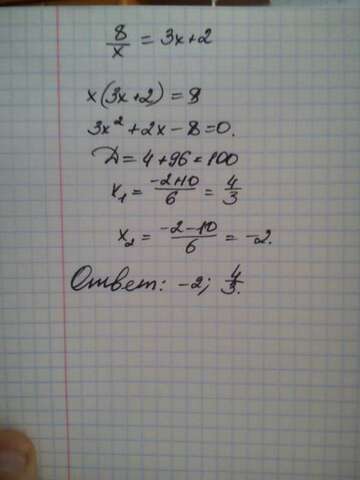 8/x = 3x+2
x(3x+2) = 8
3x² + 2x - 8 = 0.
D = 4 + 96 = 100
x₁ = (-2+10)/6 = 4/3
x₂ = (-2-10)/6 = -2.
Ответ: -2; 4/3.